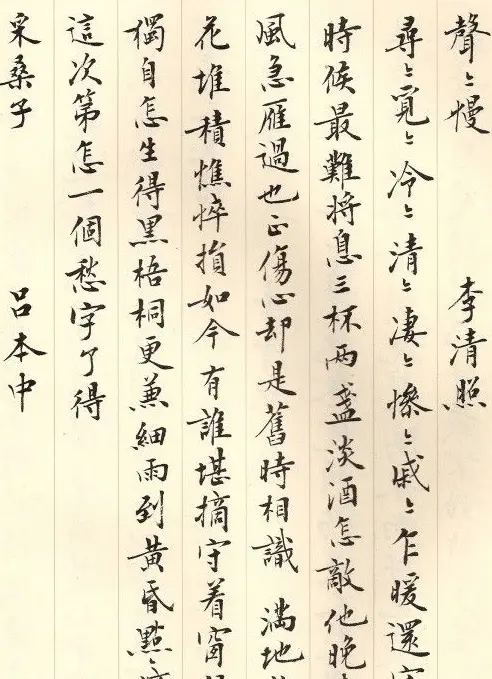 聲〻慢 李清照
尋〻覓〻冷〻清〻凄〻慘〻戚〻乍暖還
時候最難將息三杯兩盞淡酒怎敵他晚
風急雁過也正傷心却是舊時相識 滿地
花堆積憔悴損如今有誰堪摘守着窗
獨自怎生得黑梧桐更兼細雨到黃昏點〻
這次第怎一個愁字了得
采桑子 呂本中